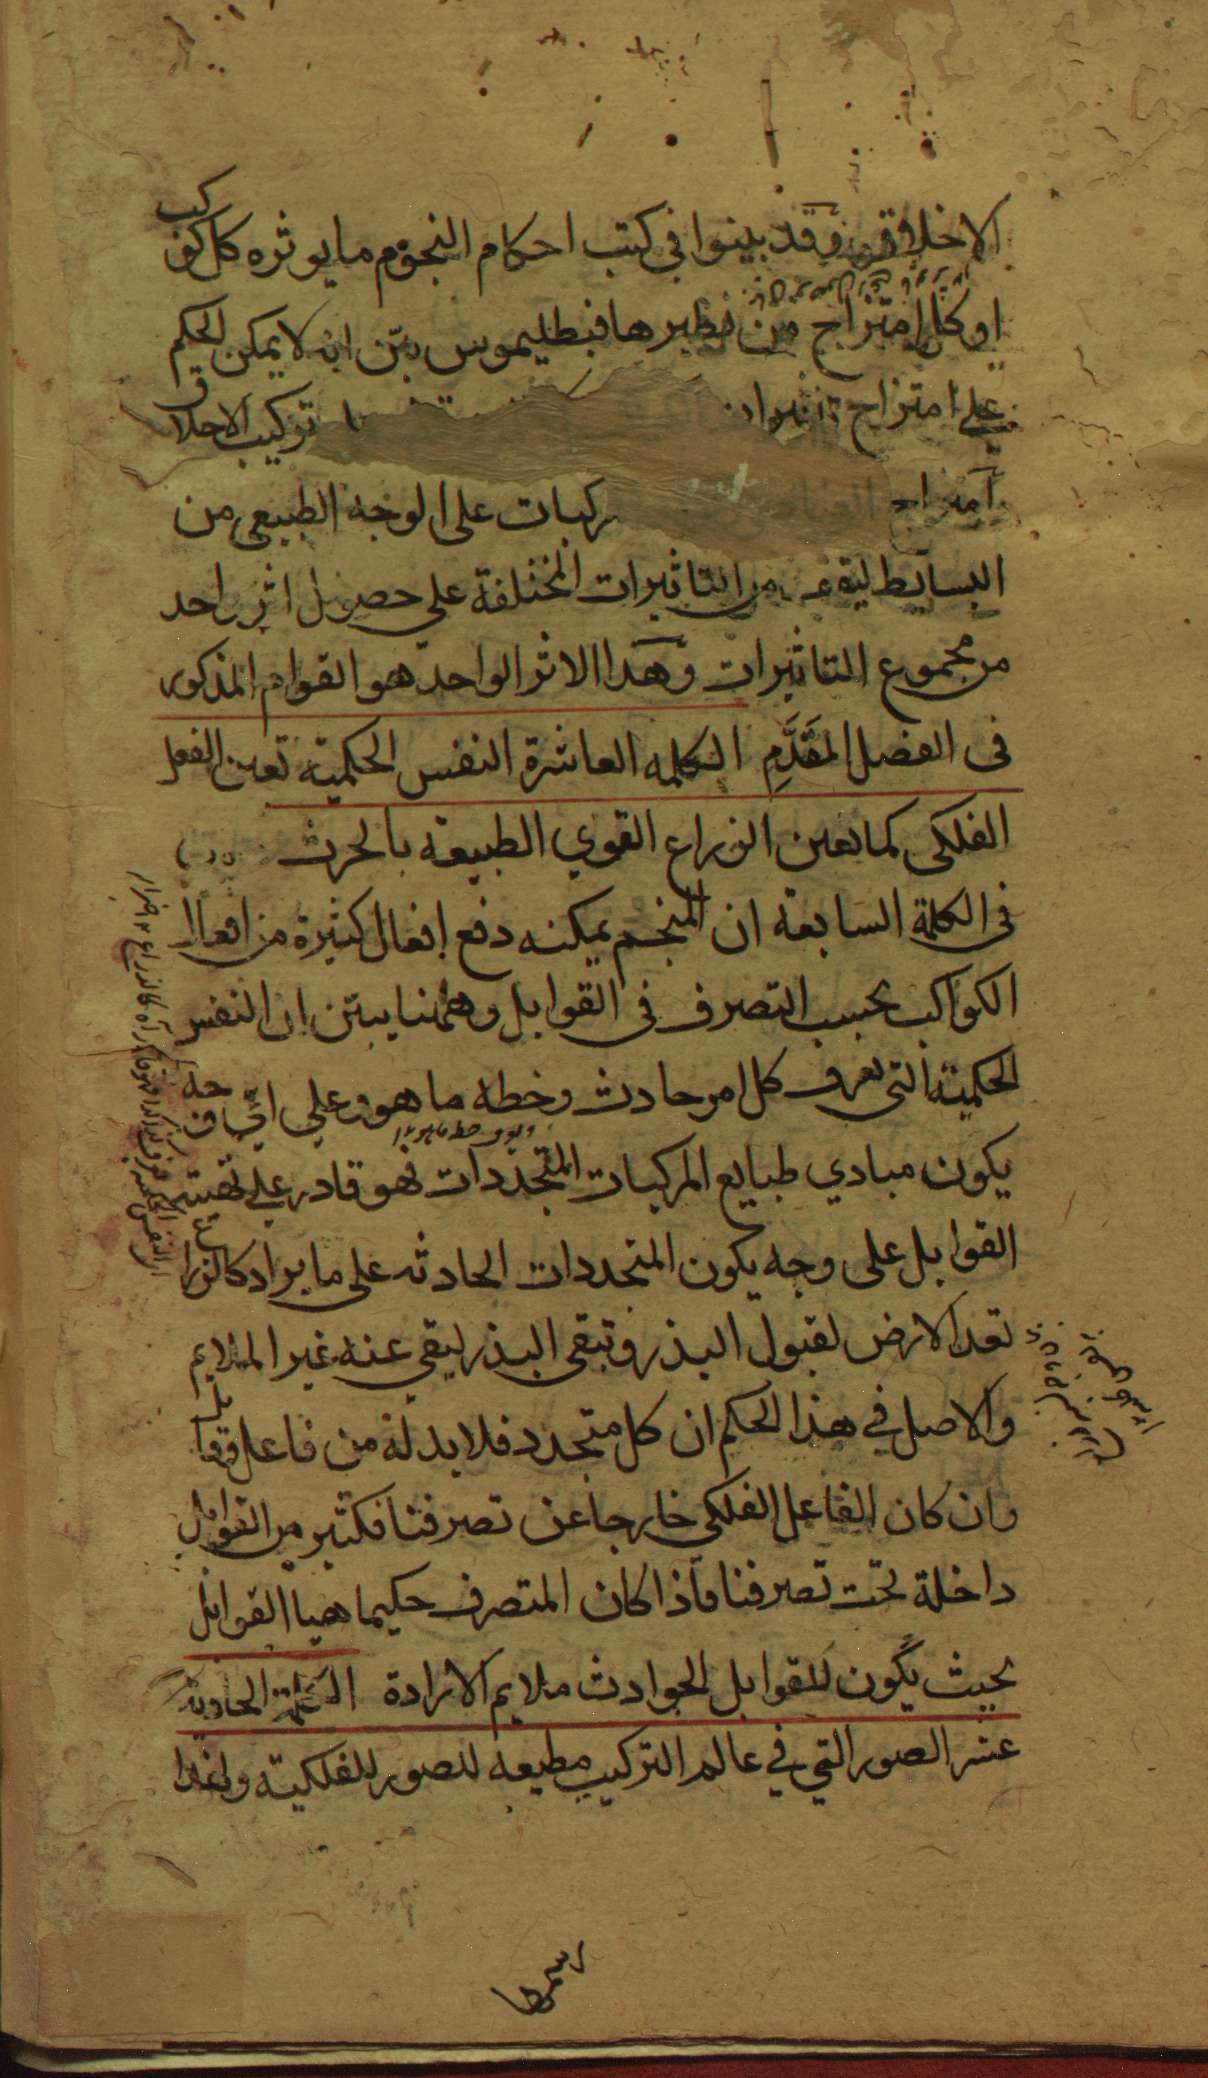 الاخلاق وقد بينوا فى كتب احكام النجوم ما يوثره كل كوكب
او كل امتزاج من نظيرها فبطليموس بين انه لا يمكن الحكم
على امتزاج تركيب الاخلاق
امتزاج ركبات على الوجه الطبيعى من
البسايط من التاثيرات المختلفة على حصول اثر واحد
من مجموع التاثيرات وهذا الاثر الواحد هو القوام المذكور
فى الفصل المقدَّم الكلمه العاشرة النفس الحكمية تعين الفعل
الفلكى كما يعين الزراع القوي الطبيعة بالحرث
فى الكلمة السابعة ان المنجم يمكنه دفع افعال كثيرة من افعال
الكواكب بحسب التصرف فى القوابل وههنا يبين ان النفس
الحكمية التى تعرف كل امر حادث وخطه ما هو وعلي ايّ وجه
يكون مبادي طبايع المركبات المتجددات فهو قادر على تهيئة
القوابل على وجه يكون المتجددات الحادثه على ما يراد كالزراع
تعد الارض لقبول البذر وتبقى البذر ليقى عنه غير الملايم
والاصل في هذا الحكم ان كل متجدد فلا بد له من فاعل وقابل
وان كان الفاعل الفلكى خارجا عن تصرفنا فكثير من القوابل
داخلة تحت تصرفنا فاذا كان المتصرف حكيما هيا القوابل
بحيث يكون للقوابل الحوادث ملايم الارادة الكلمة الحادية
عشر الصور التي في عالم التركيب مطيعه للصور الفلكية ولهذا